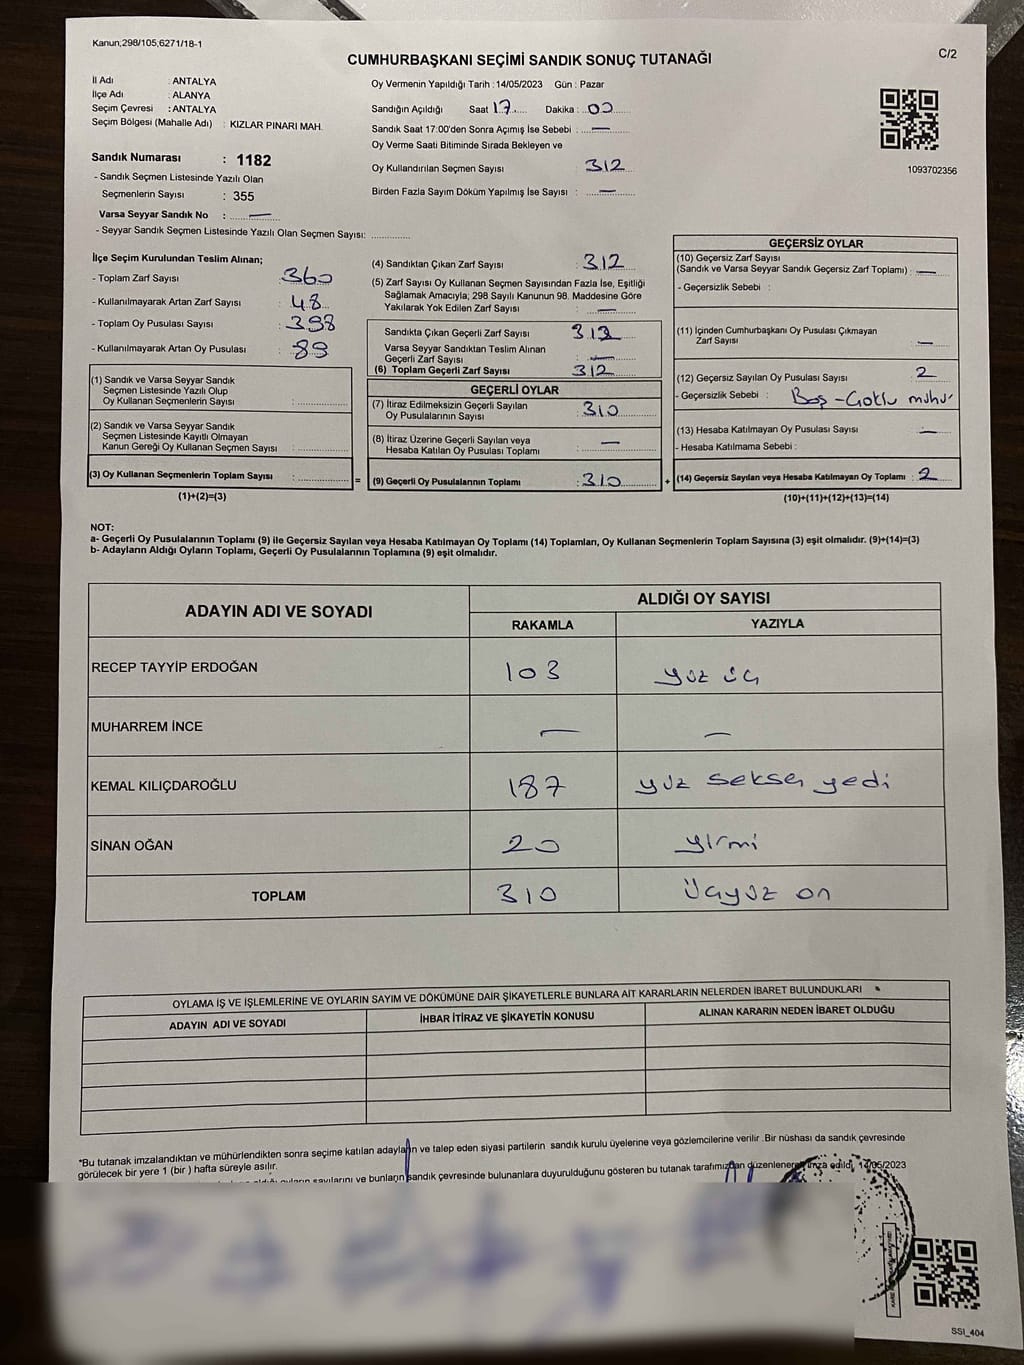 Kanun;298/105,6271/18-1
C/2
CUMHURBAŞKANI SEÇİMİ SANDIK SONUÇ TUTANAĞI
İl Adı : ANTALYA
İlçe Adı : ALANYA
Seçim Çevresi : ANTALYA
Seçim Bölgesi (Mahalle Adı) : KIZLAR PINARI MAH.
Sandık Numarası : 1182
- Sandık Seçmen Listesinde Yazılı Olan
Seçmenlerin Sayısı : 355
Varsa Seyyar Sandık No : —
- Seyyar Sandık Seçmen Listesinde Yazılı Olan Seçmen Sayısı: ............
Oy Vermenin Yapıldığı Tarih : 14/05/2023 Gün : Pazar
Sandığın Açıldığı Saat 17 Dakika : 00
Sandık Saat 17:00'den Sonra Açımış İse Sebebi : —
Oy Verme Saati Bitiminde Sırada Bekleyen ve
Oy Kullandırılan Seçmen Sayısı 312
Birden Fazla Sayım Döküm Yapılmış İse Sayısı : —
1093702356
İlçe Seçim Kurulundan Teslim Alınan;
- Toplam Zarf Sayısı : 360
- Kullanılmayarak Artan Zarf Sayısı : 48
- Toplam Oy Pusulası Sayısı : 398
- Kullanılmayarak Artan Oy Pusulası : 89
(1) Sandık ve Varsa Seyyar Sandık
Seçmen Listesinde Yazılı Olup
Oy Kullanan Seçmenlerin Sayısı : ............
(2) Sandık ve Varsa Seyyar Sandık
Seçmen Listesinde Kayıtlı Olmayan
Kanun Gereği Oy Kullanan Seçmen Sayısı : ............
(3) Oy Kullanan Seçmenlerin Toplam Sayısı : ............
(1)+(2)=(3)
=
(4) Sandıktan Çıkan Zarf Sayısı : 312
(5) Zarf Sayısı Oy Kullanan Seçmen Sayısından Fazla İse, Eşitliği
Sağlamak Amacıyla; 298 Sayılı Kanunun 98. Maddesine Göre
Yakılarak Yok Edilen Zarf Sayısı : —
Sandıkta Çıkan Geçerli Zarf Sayısı : 312
Varsa Seyyar Sandıktan Teslim Alınan
Geçerli Zarf Sayısı : —
(6) Toplam Geçerli Zarf Sayısı : 312
GEÇERLİ OYLAR
(7) İtiraz Edilmeksizin Geçerli Sayılan
Oy Pusulalarının Sayısı : 310
(8) İtiraz Üzerine Geçerli Sayılan veya
Hesaba Katılan Oy Pusulası Toplamı : —
(9) Geçerli Oy Pusulalarının Toplamı : 310
+
GEÇERSİZ OYLAR
(10) Geçersiz Zarf Sayısı
(Sandık ve Varsa Seyyar Sandık Geçersiz Zarf Toplamı) : —
- Geçersizlik Sebebi :
(11) İçinden Cumhurbaşkanı Oy Pusulası Çıkmayan
Zarf Sayısı : —
(12) Geçersiz Sayılan Oy Pusulası Sayısı : 2
- Geçersizlik Sebebi : Boş-Çoklu mühür
(13) Hesaba Katılmayan Oy Pusulası Sayısı : —
- Hesaba Katılmama Sebebi :
(14) Geçersiz Sayılan veya Hesaba Katılmayan Oy Toplamı : 2
(10)+(11)+(12)+(13)=(14)
NOT:
a- Geçerli Oy Pusulalarının Toplamı (9) ile Geçersiz Sayılan veya Hesaba Katılmayan Oy Toplamı (14) Toplamları, Oy Kullanan Seçmenlerin Toplam Sayısına (3) eşit olmalıdır. (9)+(14)=(3)
b- Adayların Aldığı Oyların Toplamı, Geçerli Oy Pusulalarının Toplamına (9) eşit olmalıdır.
ADAYIN ADI VE SOYADI ALDIĞI OY SAYISI
RAKAMLA YAZIYLA
RECEP TAYYİP ERDOĞAN 103 yüz üç
MUHARREM İNCE — —
KEMAL KILIÇDAROĞLU 187 yüz seksen yedi
SİNAN OĞAN 20 yirmi
TOPLAM 310 Üçyüz on
OYLAMA İŞ VE İŞLEMLERİNE VE OYLARIN SAYIM VE DÖKÜMÜNE DAİR ŞİKAYETLERLE BUNLARA AİT KARARLARIN NELERDEN İBARET BULUNDUKLARI
ADAYIN ADI VE SOYADI İHBAR İTİRAZ VE ŞİKAYETİN KONUSU ALINAN KARARIN NEDEN İBARET OLDUĞU
*Bu tutanak imzalandıktan ve mühürlendikten sonra seçime katılan adayların ve talep eden siyasi partilerin sandık kurulu üyelerine veya gözlemcilerine verilir .Bir nüshası da sandık çevresinde
görülecek bir yere 1 (bir ) hafta süreyle asılır.
sayılarını ve bunların sandık çevresinde bulunanlara duyurulduğunu gösteren bu tutanak tarafımızdan düzenlenerek imza edildi. 14/05/2023
SSI_404